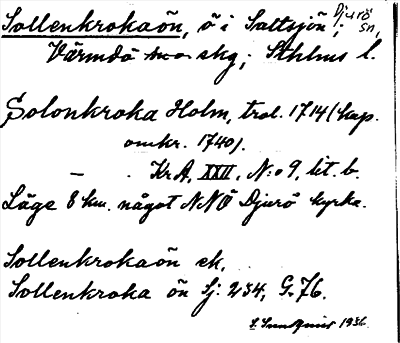 Sollenkrokaön, ö i Saltsjön; Djurö sn,
Värmdö skg; Sthlms l.
Solonkroka Holm, trol. 1714 (kop.
omkr. 1740).
— . KrA, XXII, N:o 9, lit. b.
Läge 8 km. något NNÖ Djurö kyrka.
Sollenkrokaön ek.
Sollenkroka ön Sj: 234, G. 76.
S. Sundquist 1936.